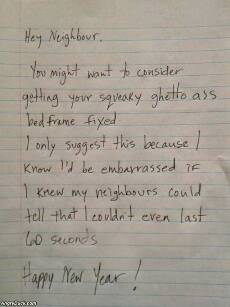 Hey Neighbour.
You might want to consider
getting your squeaky ghetto ass
bedframe fixed
I only suggest this because I
know I'd be embarrassed if
I knew my neighbours could
tell that I couldn't even last
60 seconds
Happy New Year!